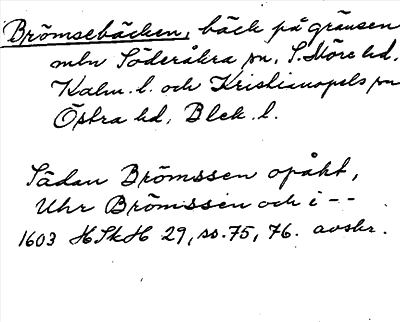 Brömsebäcken, bäck på gränsen
mln Söderåkra sn, S. Möre hd,
Kalm. l. och Kristianopels sn
Östra hd, Blek. l.
Sädan Brömssen opåkt,
Uhr Brömssen och i --
1603 HSkH 29, ss. 75, 76. avskr.